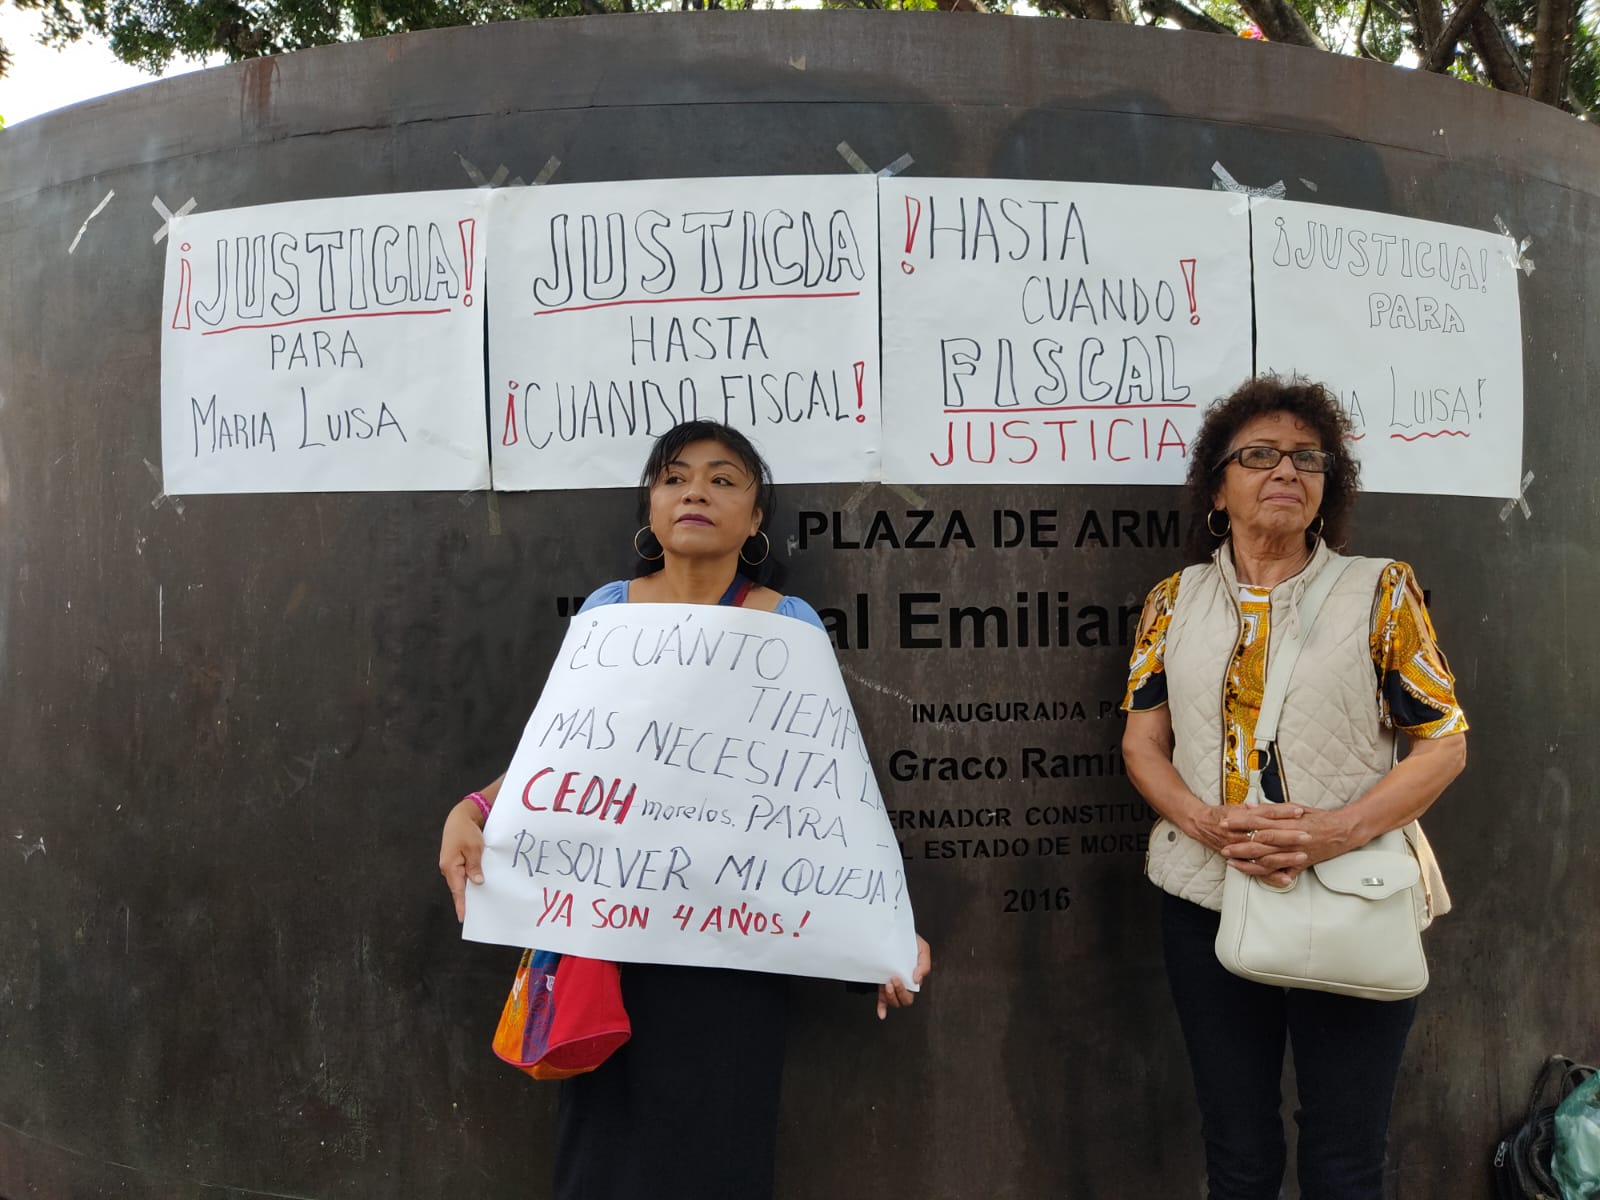 ¡JUSTICIA!
PARA
MARIA LUISA
JUSTICIA
HASTA
¡CUANDO FISCAL!
!HASTA
CUANDO!
FISCAL
JUSTICIA
¡JUSTICIA!
PARA
LUISA!
PLAZA DE ARM
al Emilian
INAUGURADA
Graco Ramí
ERNADOR CONSTITU
ESTADO DE MORE
2016
¿CUÁNTO
TIEMPO
MAS NECESITA LA
CEDH-morelos. PARA
RESOLVER MI QUEJA?
YA SON 4 AÑOS!